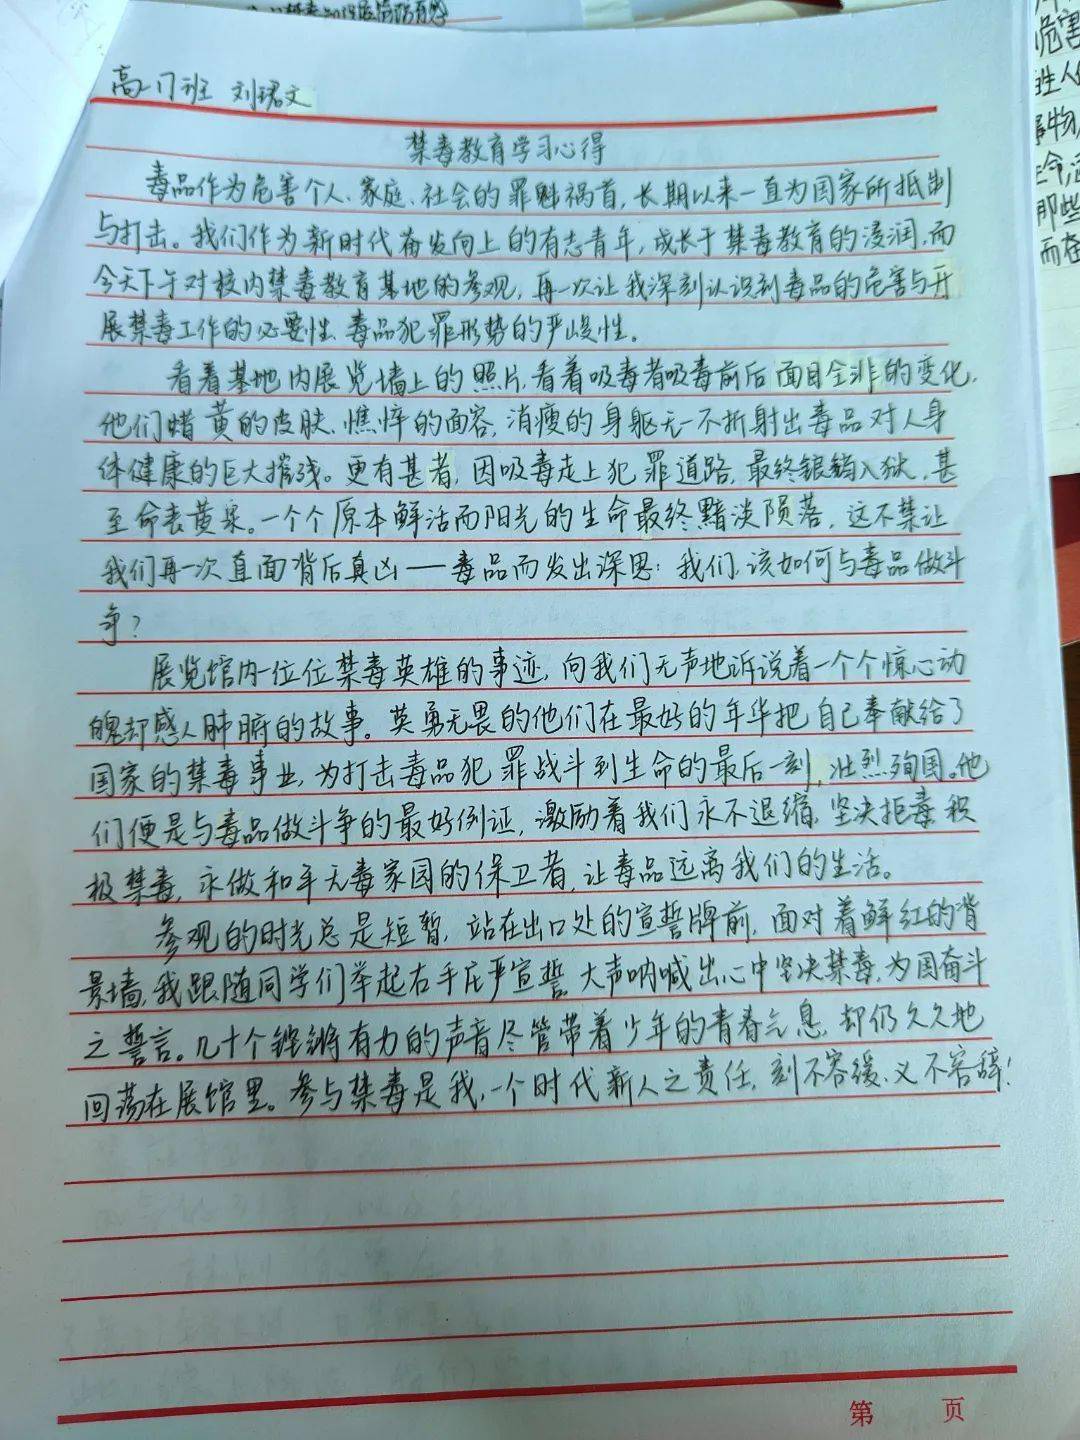 高一17班 刘珺文
禁毒教育学习心得
毒品作为危害个人、家庭、社会的罪魁祸首，长期以来一直为国家所抵制
与打击。我们作为新时代奋发向上的有志青年，成长于禁毒教育的浸润，而
今天下午对校内禁毒教育基地的参观，再一次让我深刻认识到毒品的危害与开
展禁毒工作的必要性、毒品犯罪形势的严峻性。
看着基地内展览墙上的照片，看着吸毒者吸毒前后面目全非的变化，
他们蜡黄的皮肤、憔悴的面容，消瘦的身躯无一不折射出毒品对人身
体健康的巨大摧残。更有甚者，因吸毒走上犯罪道路，最终锒铛入狱，甚
至命丧黄泉。一个个原本鲜活而阳光的生命最终黯淡陨落，这不禁让
我们再一次直面背后真凶——毒品而发出深思：我们，该如何与毒品做斗
争？
展览馆内一位位禁毒英雄的事迹，向我们无声地诉说着一个个惊心动
魄却感人肺腑的故事。英勇无畏的他们在最好的年华把自己奉献给了
国家的禁毒事业，为打击毒品犯罪战斗到生命的最后一刻，壮烈殉国。他
们便是与毒品做斗争的最好例证，激励着我们永不退缩，坚决拒毒，积
极禁毒，永做和平无毒家园的保卫者，让毒品远离我们的生活。
参观的时光总是短暂，站在出口处的宣誓牌前，面对着鲜红的背
景墙，我跟随同学们举起右手庄严宣誓，大声呐喊出心中坚决禁毒，为国奋斗
之誓言。几十个铿锵有力的声音尽管带着少年的青春气息，却仍久久地
回荡在展馆里。参与禁毒是我，一个时代新人之责任，刻不容缓、义不容辞！
第 页
危害
物
那些
而在